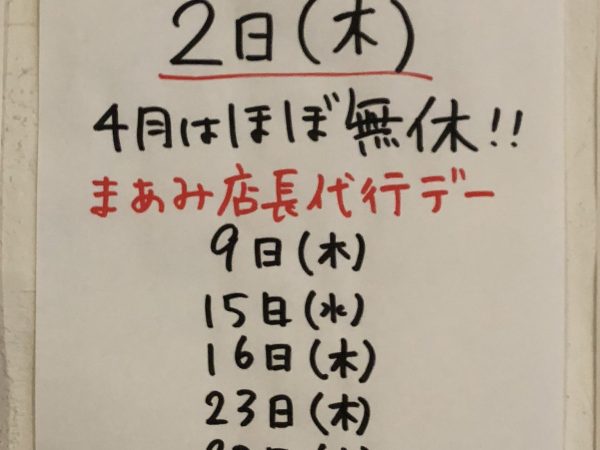 2日(木)
4月はほぼ無休!!
まあみ店長代行デー
9日(木)
15日(水)
16日(木)
23日(木)